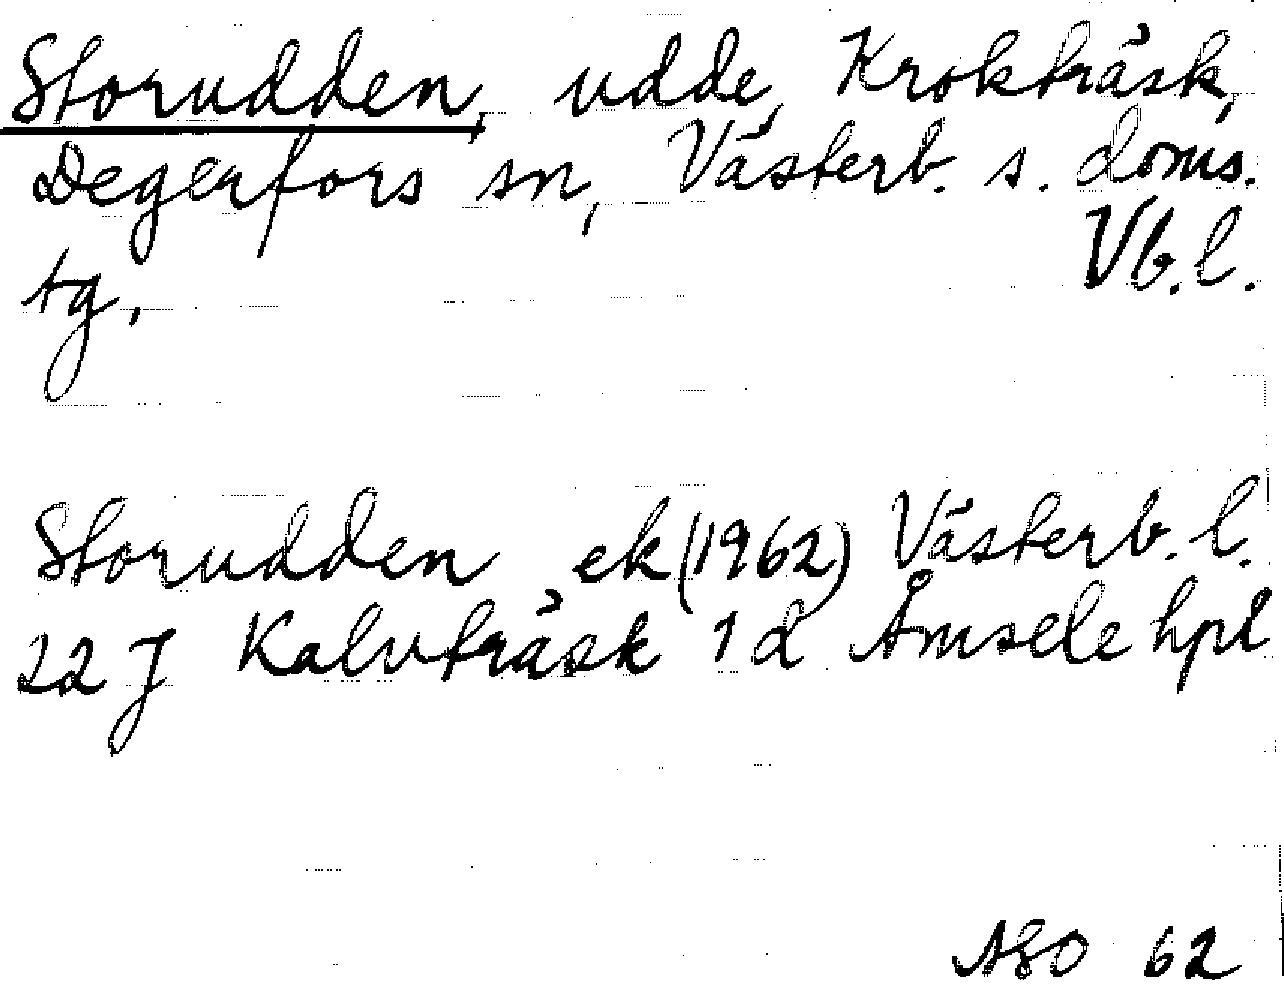 Storudden, udde, Krokträsk,
Degerfors sn, Västerb. s. doms.
tg, Vb.l.
Storudden ek (1962) Västerb. l.
22 J Kalvträsk 1 d Åmsele hpl
ASO 62